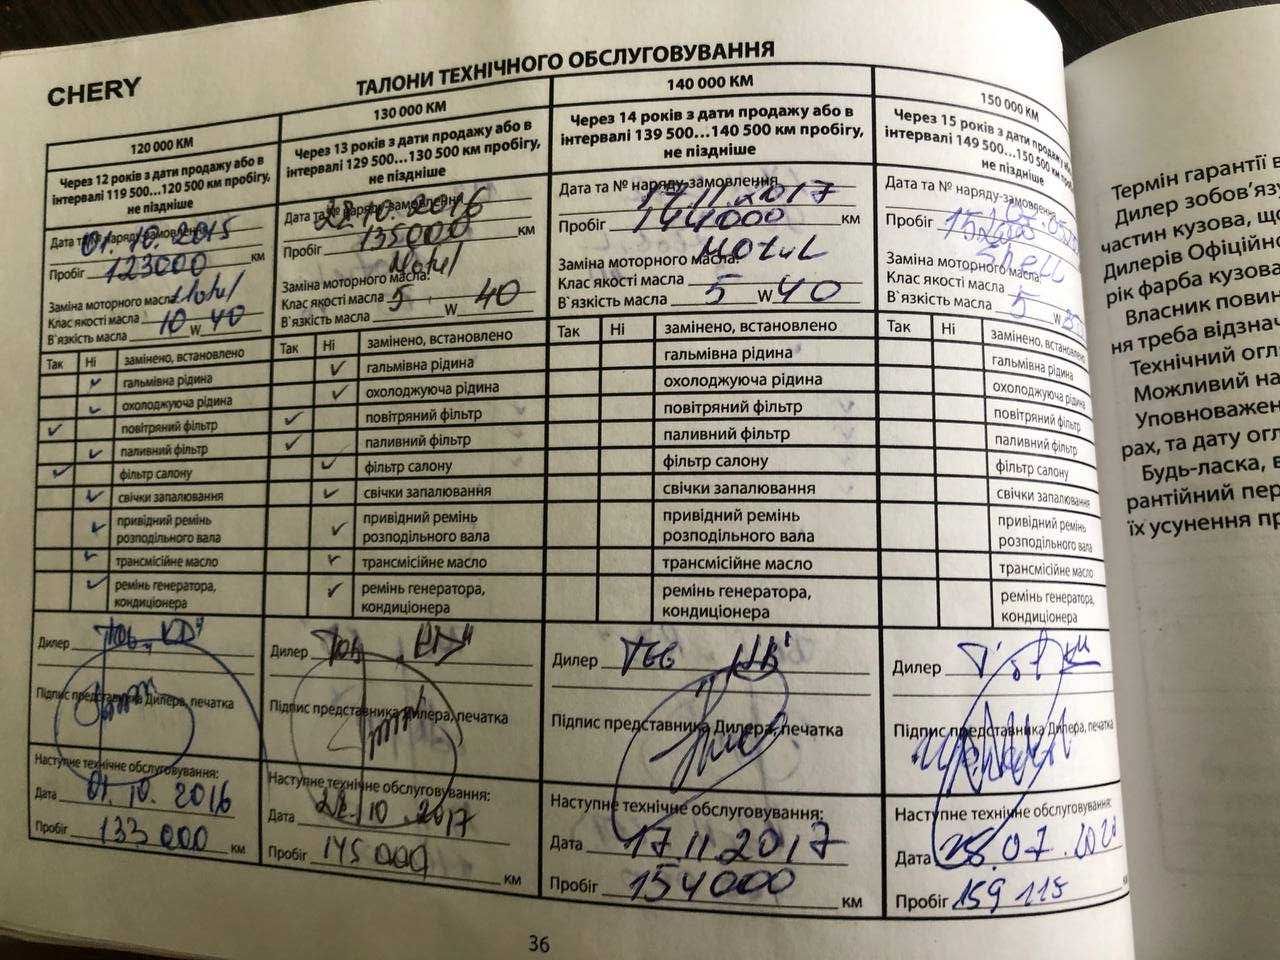 CHERY
ТАЛОНИ ТЕХНІЧНОГО ОБСЛУГОВУВАННЯ
120 000 КМ
Через 12 років з дати продажу або в
інтервалі 119 500...120 500 км пробігу,
не пізніше
Дата та № наряду-замовлення
01.10.2015
Пробіг 123000 км
Заміна моторного масла: Motul
Клас якості масла
В`язкість масла 10 W 40
Так Ні замінено, встановлено
✓ гальмівна рідина
✓ охолоджуюча рідина
✓ повітряний фільтр
✓ паливний фільтр
✓ фільтр салону
✓ свічки запалювання
✓ привідний ремінь
розподільного вала
✓ трансмісійне масло
✓ ремінь генератора,
кондиціонера
Дилер
Підпис представника Дилера, печатка
Наступне технічне обслуговування:
Дата 01.10.2016
Пробіг 133 000 км
130 000 КМ
Через 13 років з дати продажу або в
інтервалі 129 500...130 500 км пробігу,
не пізніше
Дата та № наряду-замовлення
22.10.2016
Пробіг 135000 км
Motul
Заміна моторного масла:
Клас якості масла
В`язкість масла 5 W 40
Так Ні замінено, встановлено
✓ гальмівна рідина
✓ охолоджуюча рідина
✓ повітряний фільтр
✓ паливний фільтр
✓ фільтр салону
✓ свічки запалювання
✓ привідний ремінь
розподільного вала
✓ трансмісійне масло
✓ ремінь генератора,
кондиціонера
Дилер
Підпис представника Дилера, печатка
Наступне технічне обслуговування:
Дата 22.10.2017
Пробіг 145 000 км
140 000 КМ
Через 14 років з дати продажу або в
інтервалі 139 500...140 500 км пробігу,
не пізніше
Дата та № наряду-замовлення
17.11.2017
Пробіг 144000 км
Заміна моторного масла: Motul
Клас якості масла
В`язкість масла 5 W 40
Так Ні замінено, встановлено
гальмівна рідина
охолоджуюча рідина
повітряний фільтр
паливний фільтр
фільтр салону
свічки запалювання
привідний ремінь
розподільного вала
трансмісійне масло
ремінь генератора,
кондиціонера
Дилер
Підпис представника Дилера, печатка
Наступне технічне обслуговування:
Дата 17.11.2017
Пробіг 154000 км
150 000 КМ
Через 15 років з дати продажу або
інтервалі 149 500...150 500 км
не пізніше
Дата та № наряду-замовлення
Пробіг
Shell
Заміна моторного масла:
Клас якості масла
В`язкість масла 5 W
Так Ні замінено, встановлено
гальмівна рідина
охолоджуюча рідина
повітряний фільтр
паливний фільтр
фільтр салону
свічки запалювання
привідний ремінь
розподільного вала
трансмісійне масло
ремінь генератора,
кондиціонера
Дилер
Підпис представника Дилера, печатка
Наступне технічне обслуговування:
Дата
Пробіг 159 115
36
Термін гарантії
Дилер зобов'язу
частин кузова, що
Дилерів Офіційно
рік фарба кузова
Власник повин
ня треба відзнач
Технічний огл
Можливий на
Уповноважен
рах, та дату огл
Будь-ласка, в
рантійний пер
їх усунення пр